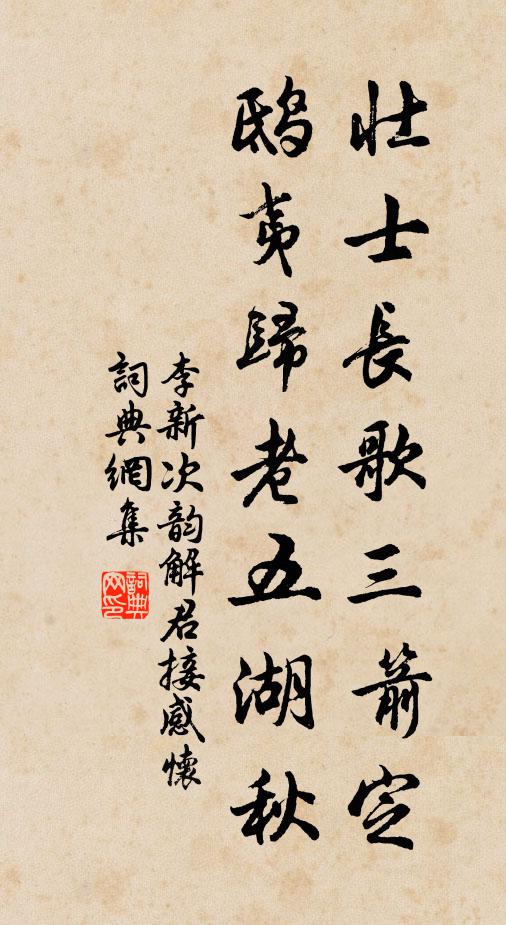 壯士長歌三箭定
鴟夷歸老五湖秋
李新次韵解君接感懷
詞典網集
詞典网印